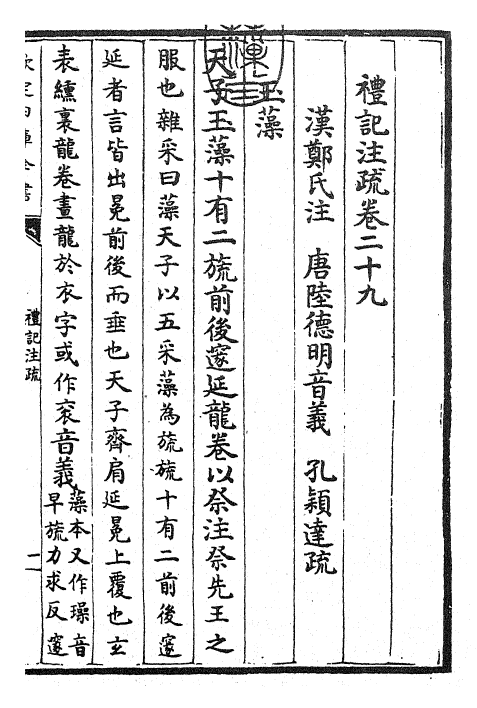 禮記注疏卷二十九
漢鄭氏注　唐陸德明音義　孔穎達疏
玉藻
天子玉藻十有二旒前後邃延龍卷以祭注祭先王之
服也雜采曰藻天子以五采藻為旒旒十有二前後邃
延者言皆出冕前後而垂也天子齊肩延冕上覆也玄
表纁裏龍卷畫龍於衣字或作衮音義藻本又作璪音
早旒力求反邃
禮記注疏